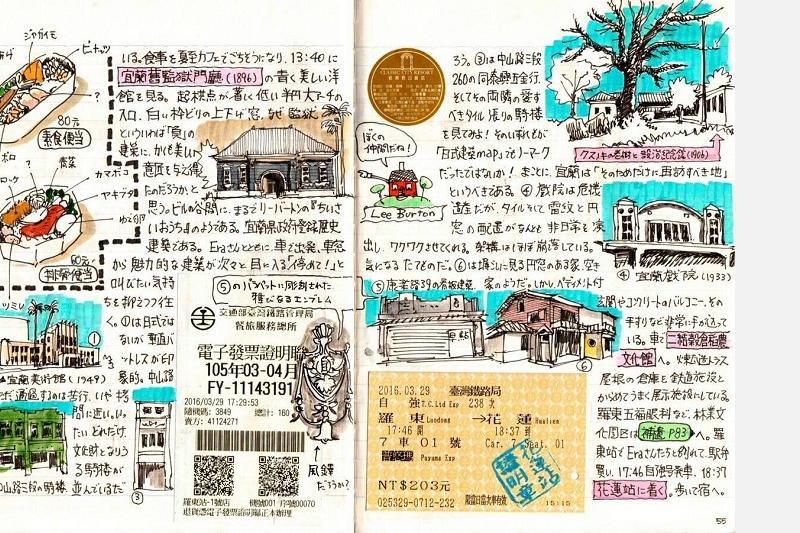 ジャガイモ
ピーナッツ
80元
素食便当
カマボコ
ヤキブタ
60元
排骨便当
いる。食事を夏至カフェでごちそうになり、13:40に
宜蘭舊監獄門廳(1896)の青く美しい洋
館を見る。起拱点が著しく低い半円大アーチの
入口、白い枠どりの上下げ窓。なぜ監獄
といういわば「負」の
建築に、かくも美しい
意匠を与え
たのだろうかと
思う。ビルの谷間に、まるでリー・バートンの『ちいさ
いおうち』のようである。宜蘭県政府登録歴史
建築である。Eraさんとともに車で出発、車窓
から魅力的な建築が次々と目に入る。「停めて!」と
叫びたい気持
ちを抑えつつ往
く。①は日式では
ないが垂直バ
ットレスが印
象的。中山路
①
宜蘭美術館(1949)
③
⑤のパラペットに彫刻された
雅びなるエンブレム
交通部臺灣鐵路管理局
餐旅服務總所
電子發票證明聯
105年03-04月
FY-11143191
2016/03/29 17:29:53
隨機碼: 3849 總計: 160
賣方: 41124271
羅東站-1號店 機號001 序號00070
退貨憑電子發票證明聯正本辦理
風鐸
だろうか?
CLASSIC CITY RESORT
ぼくの
仲間だね!
Lee Burton
ろう。③は中山路三段
260の同泰興五金行。
そしてその両隣の愛す
べきタイル張りの騎楼
を見てみよ! そのいずれもが
「日式建築map」でノーマーク
だったではないか! まことに、宜蘭は「そのためだけに再訪すべき地」
というべきである。④戲院は危機
遺産だが、タイルそして雷紋と円
窓の配置がなんとも非日常を演
出し、ワクワクさせてくれる。架構はほぼ崩落している。
気になるたてものだ。⑥は塀ごしに見る円窓のある家、空き
⑤康老路39の看板建築。
家のようだ。しかし、ペディメント付
クスノキの老樹と設治紀念館(1906)
④宜蘭戲院(1933)
⑥
玄関やコンクリートのバルコニー、その
手すりなど非常に手が込って
いる。車で二結穀倉稻農
文化館へ。煉瓦造トラス
屋根の倉庫を鉄道施設と
からめてうまく展示施設にしている。
羅東五福眼科など、林業文
化園区は補遺P83へ。羅
東站でEraさんたちと別れて、駅弁
買い、17:46自強号発車、18:37
花蓮站に着く。歩いて宿へ。
2016.03.29 臺灣鐵路局
自強 T.C.Ltd Exp 238次
羅東 Luodong →花蓮 Hualien
17:46開 18:37到
7車01號 Car. 7 Seat. 01
Puyuma Exp
NT$203元
025329-0712-232
15:15
55